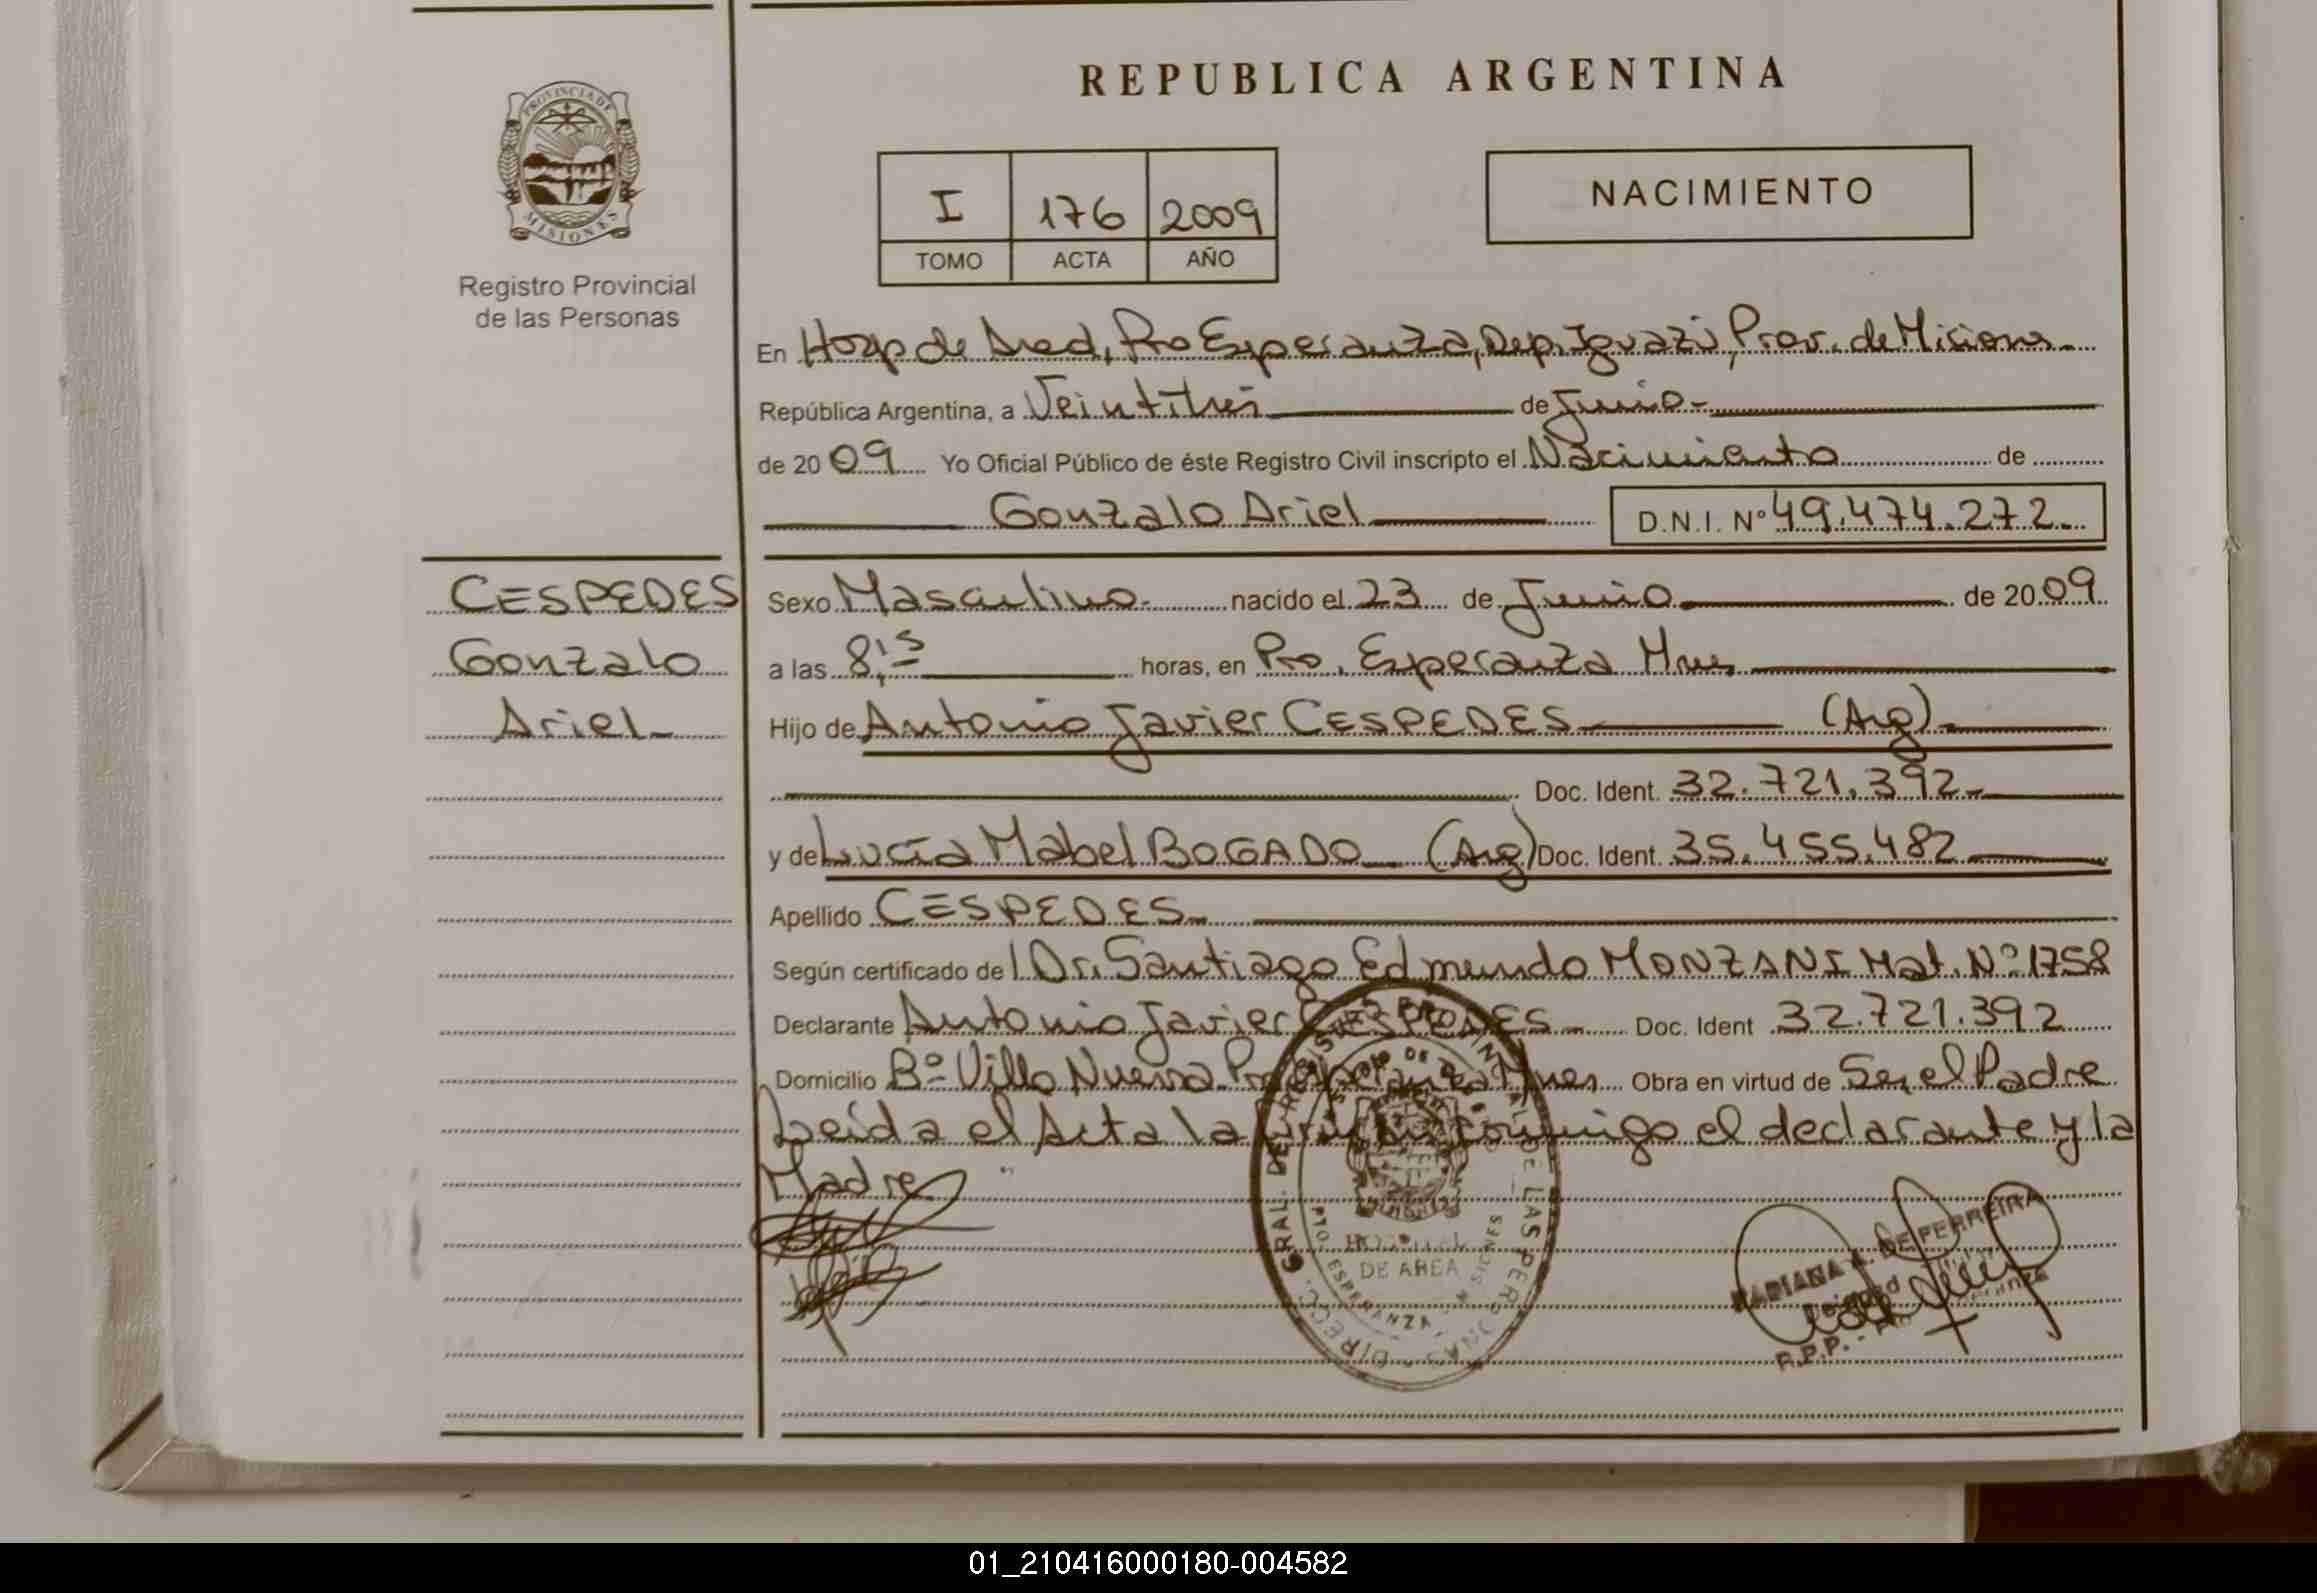 REPUBLICA ARGENTINA
PROVINCIA DE
MISIONES
Registro Provincial
de las Personas
I 176 2009
TOMO ACTA AÑO
NACIMIENTO
En Hosp de Area, Pto Esperanza, Dep. Iguazú, Prov. de Misiones
República Argentina, a Veintitres de Junio
de 2009 Yo Oficial Público de éste Registro Civil inscripto el Nacimiento de
Gonzalo Ariel D.N.I. Nº 49.474.272
CESPEDES
Gonzalo
Ariel
Sexo Masculino nacido el 23 de Junio de 2009
a las 8,15 horas, en Pto. Esperanza Mnes
Hijo de Antonio Javier CESPEDES (Arg)
Doc. Ident. 32.721.392
y de Lucía Mabel BOGADO (Arg) Doc. Ident. 35.455.482
Apellido CESPEDES
Según certificado del Dr. Santiago Edmundo MONZANI Mat. Nº 1758
Declarante Antonio Javier CESPEDES Doc. Ident 32.721.392
Domicilio Bº Villa Nueva Pto Esperanza Mnes Obra en virtud de Ser el Padre
Leída el Acta la conmigo el declarante y la
Madre
DIRECC. GRAL. DEL REGISTRO PROVINCIAL DE LAS PERSONAS
HOSPITAL
DE AREA
PTO. ESPERANZA - MISIONES
MARIANA DE FERREIRA
R.P.P. -
01_210416000180-004582